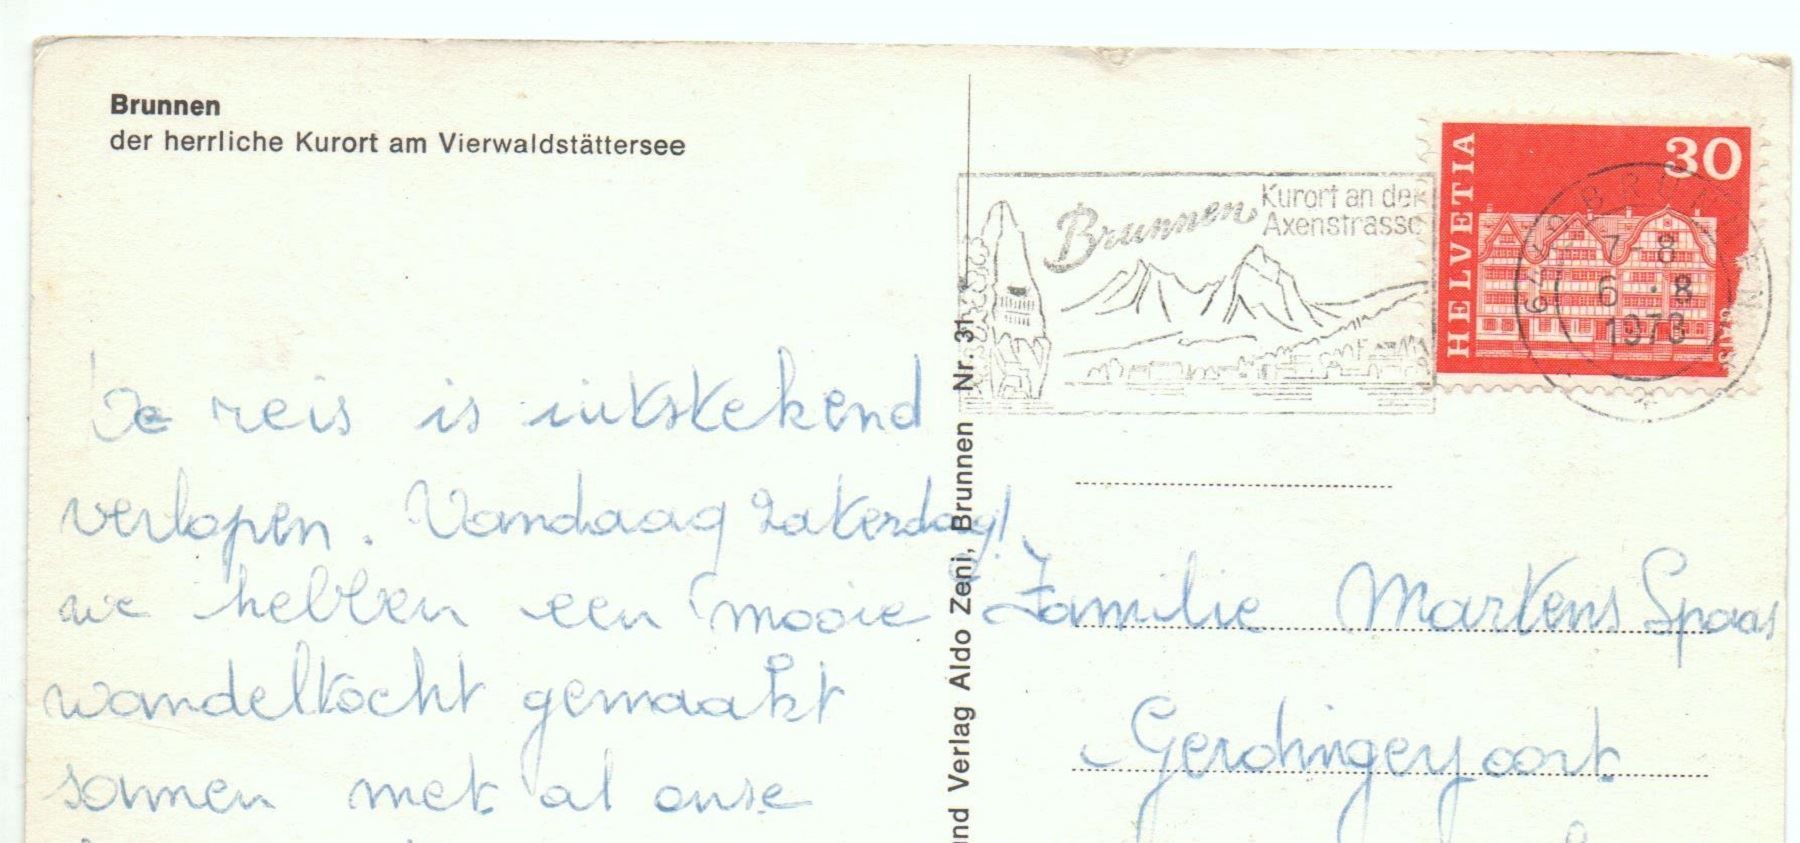 Brunnen
der herrliche Kurort am Vierwaldstättersee
De reis is uitstekend
verlopen. Vandaag zaterdag!
we hebben een mooie
wandeltocht gemaakt
samen met al onze
nd Verlag Aldo Zeni, Brunnen Nr. 31
Brunnen
Kurort an der
Axenstrasse
HELVETIA
30
6440 BRUNNEN
7-8
6.-8
1973
Familie Martens Spaas
Gerdingerpoort